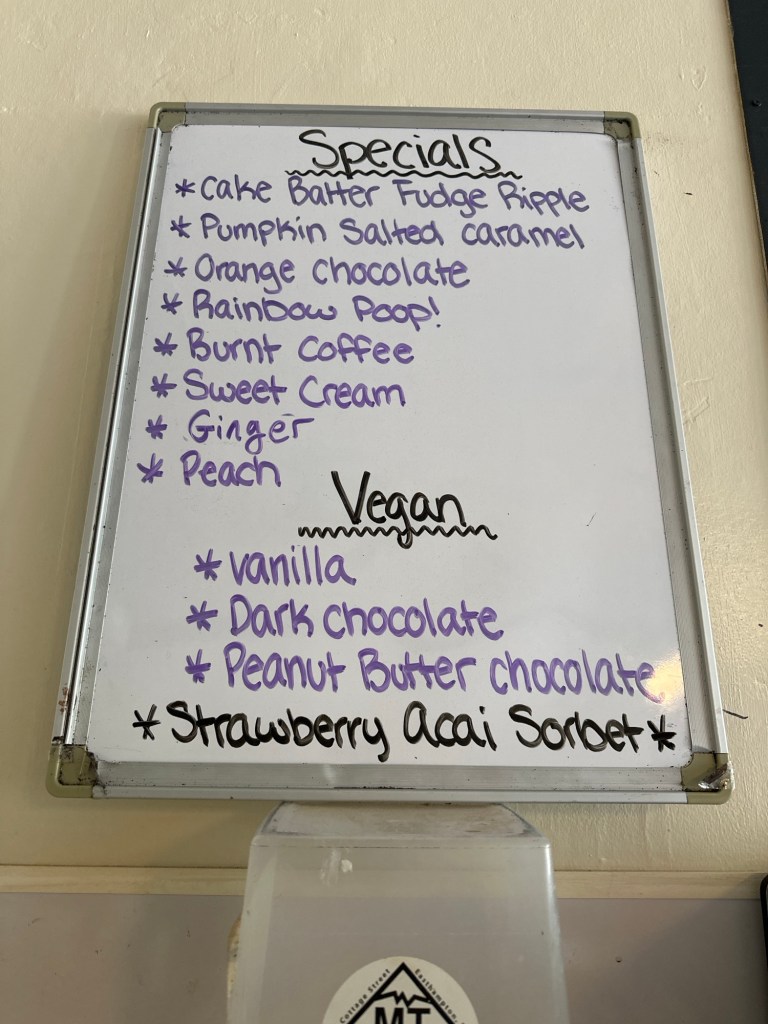 Specials
* Cake Batter Fudge Ripple
* Pumpkin Salted caramel
* Orange chocolate
* Rainbow Poop!
* Burnt Coffee
* Sweet Cream
* Ginger
* Peach
Vegan
* vanilla
* Dark chocolate
* Peanut Butter chocolate
* Strawberry Acai Sorbet *
Cottage Street Easthampton
MT